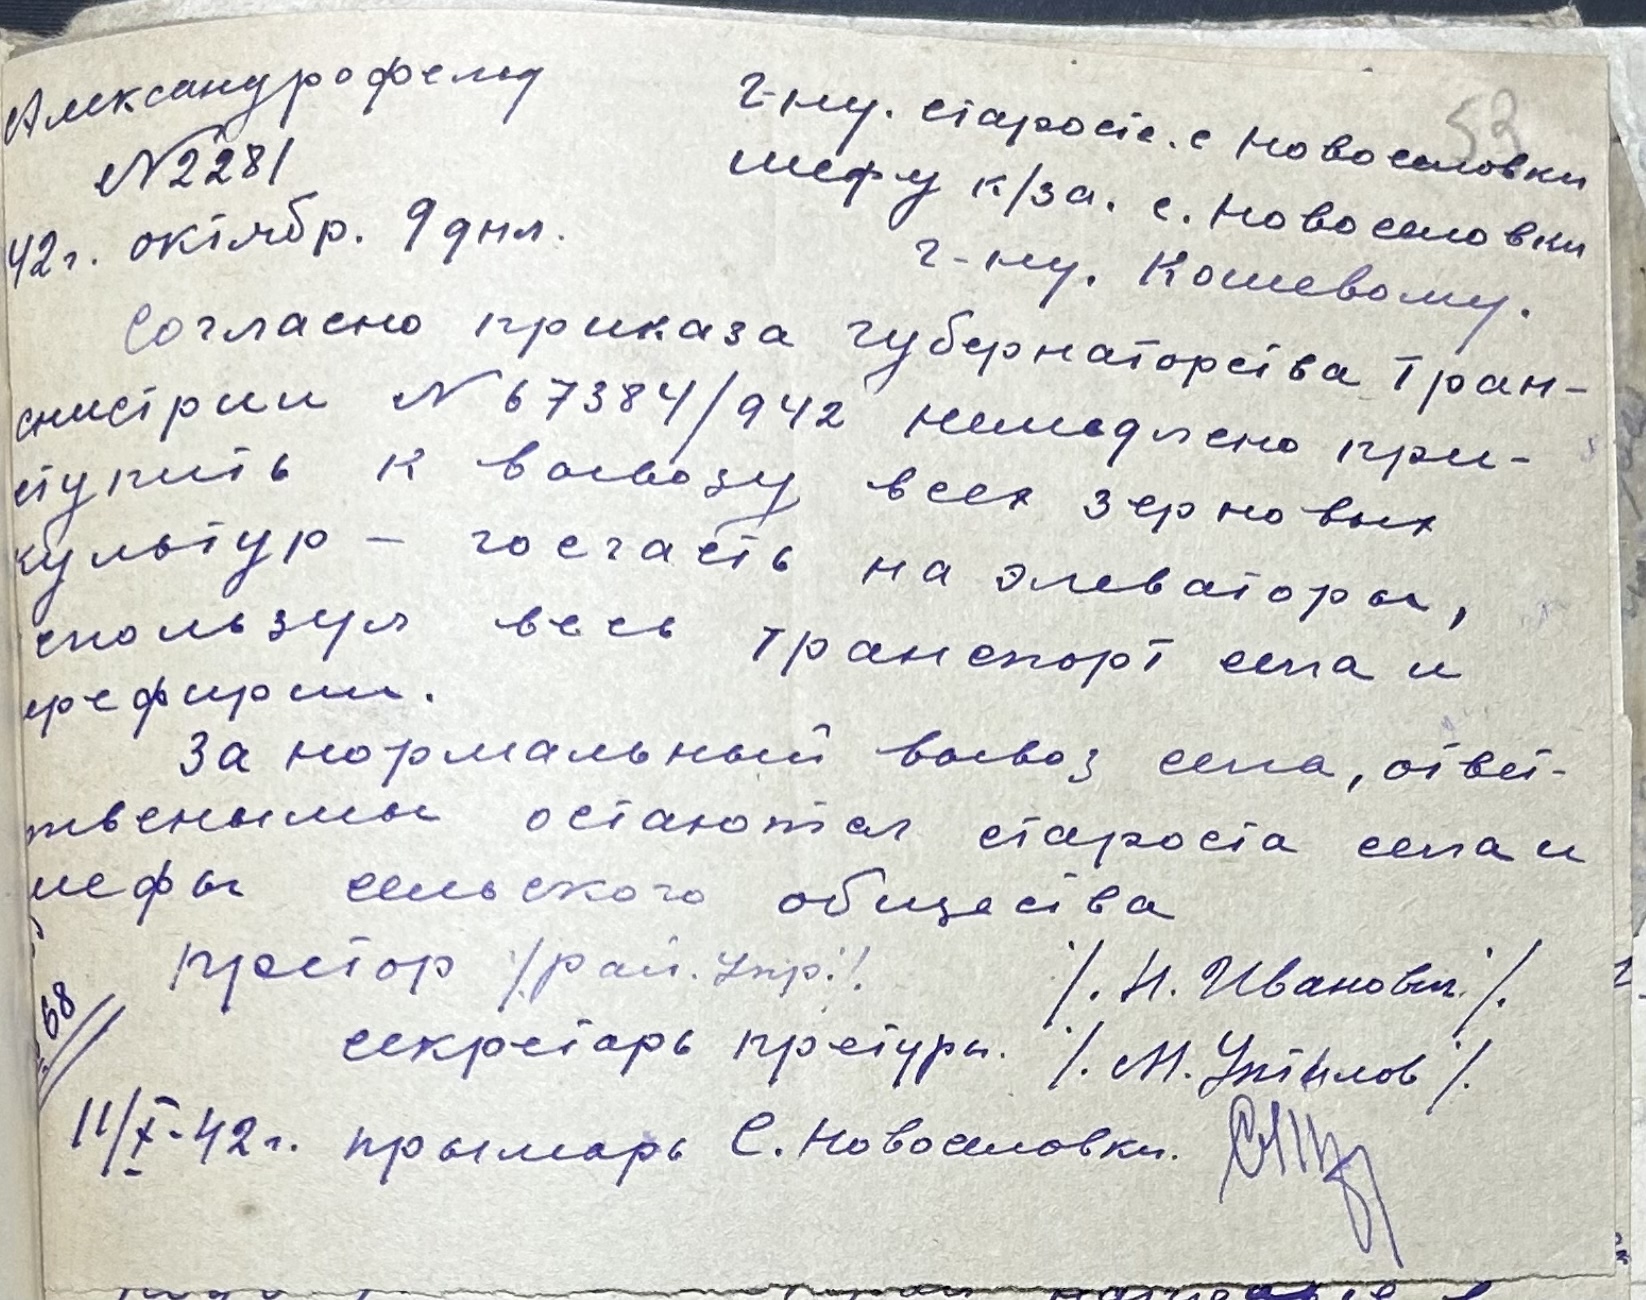 Александрофельд
№2281
42г. октябр. 9 дня.
53
г-ну. старосте. с Новоселовки
шефу к/за. с. Новоселовки
г-ну. Кошевому.
Согласно приказа губернаторства Тран-
снистрии № 67384/942 немедлено при-
ступить к вывозу всех зерновых
культур – госчасть на элеваторы,
используя весь транспорт села и
префирии.
За нормальный вывоз села, ответ-
твенымы остаются староста села и
шефы сельского общества
Претор /.рай. Упр./.
/. Н. Иванович ./.
секретарь претуры. /. М. /.
68
11/X-42г. прымарь С. Новоселовки.